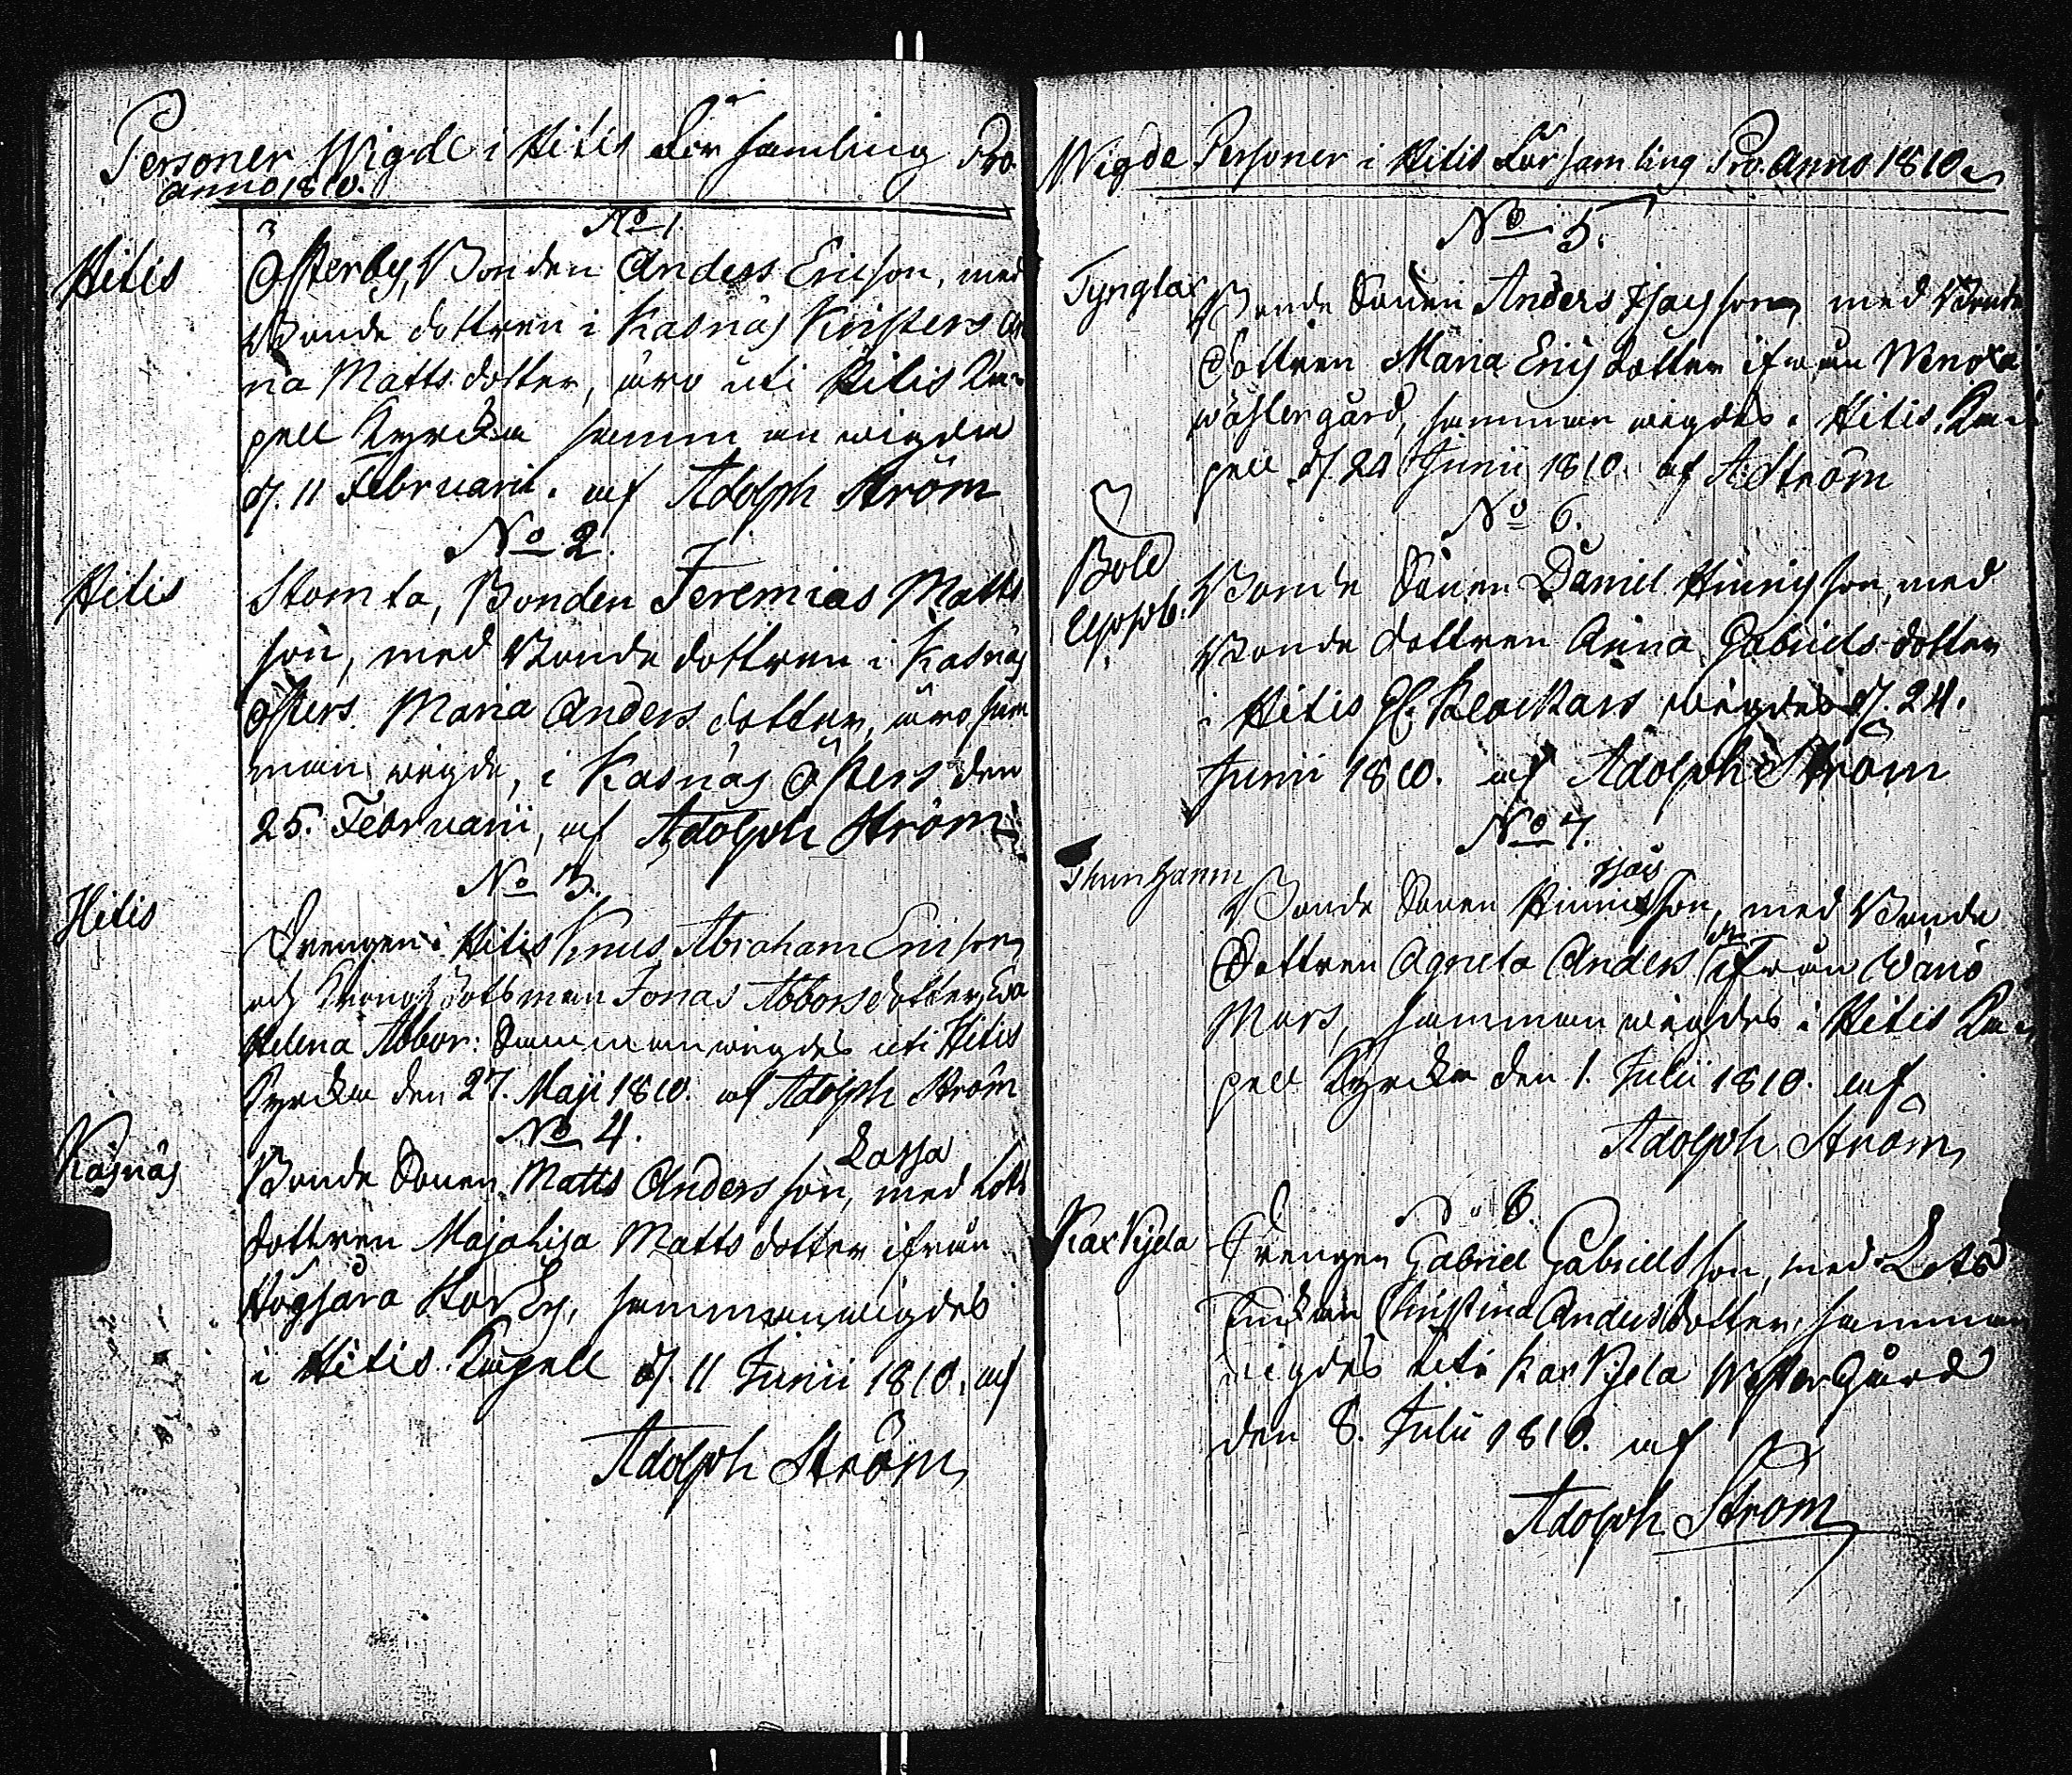 Personer Wigde i Hitis Församling Pro.
anno 1810.
No 1.
Hitis Österby, Bonden Anders Ericson, med
Bonde dottren i Kasnäs Kristers An
na Matts dotter, äro uti Hitis Ca-
pell Kyrcka samman wigde
d. 11 Februarii. af Adolph Ström
No 2.
Hitis Stomta, Bonden Jeremias Matts
son, med Bonde dottren i Kasnäs
Östers Maria Anders dotter, äro sam
man wigde, i Kasnäs Östers den
25. Februarii, af Adolph Ström
No 3.
Hitis Drengen i Hitis Knus Abraham Ericson
och Båtsman Jonas Abbors dotter Eva
Helena Abbor: Sammanwigdes uti Hitis
Kyrcka den 27. Maji 1810. af Adolph Ström
No 4.
Kasnäs Bonde Sonen Matts Anders son, med Lots
Lassa
dottren Maja Lisa Matts dotter ifrån
Högsåra Storby, sammanwigdes
i Hitis Capell d. 11 Junii 1810. af
Adolph Ström
Wigde Personer i Hitis Församling Pro. Anno 1810
No 5.
Tynglax Bonde Sonen Anders Isacsson, med Bonde
Dottren Maria Erics dotter ifrån Wenoxa
wästergård, samman wigdes i Hitis Ca-
pell d. 24 Junii 1810. af A Ström
No 6.
Böle Bonde Sonen Daniel Hinricsson, med
Bonde dottren Anna Gabriels dotter
i Hitis Klockars wigdes d. 24.
Junii 1810. af Adolph Ström
No 7.
Isac
Bonde Sonen Hinricsson, med Bonde
Dottren Agneta Anders dr ifrån Wänö
Mars, samman wigdes i Hitis Ca-
pell Kyrcka den 1. Julii 1810. af
Adolph Ström
No 8.
Kaxkjela Drengen Gabriel Gabrielsson, med Lots
Enckan Christina Anders dotter, samman
wigdes uti Kaxkjela Westergård
den 8. Julii 1810. af
Adolph Ström